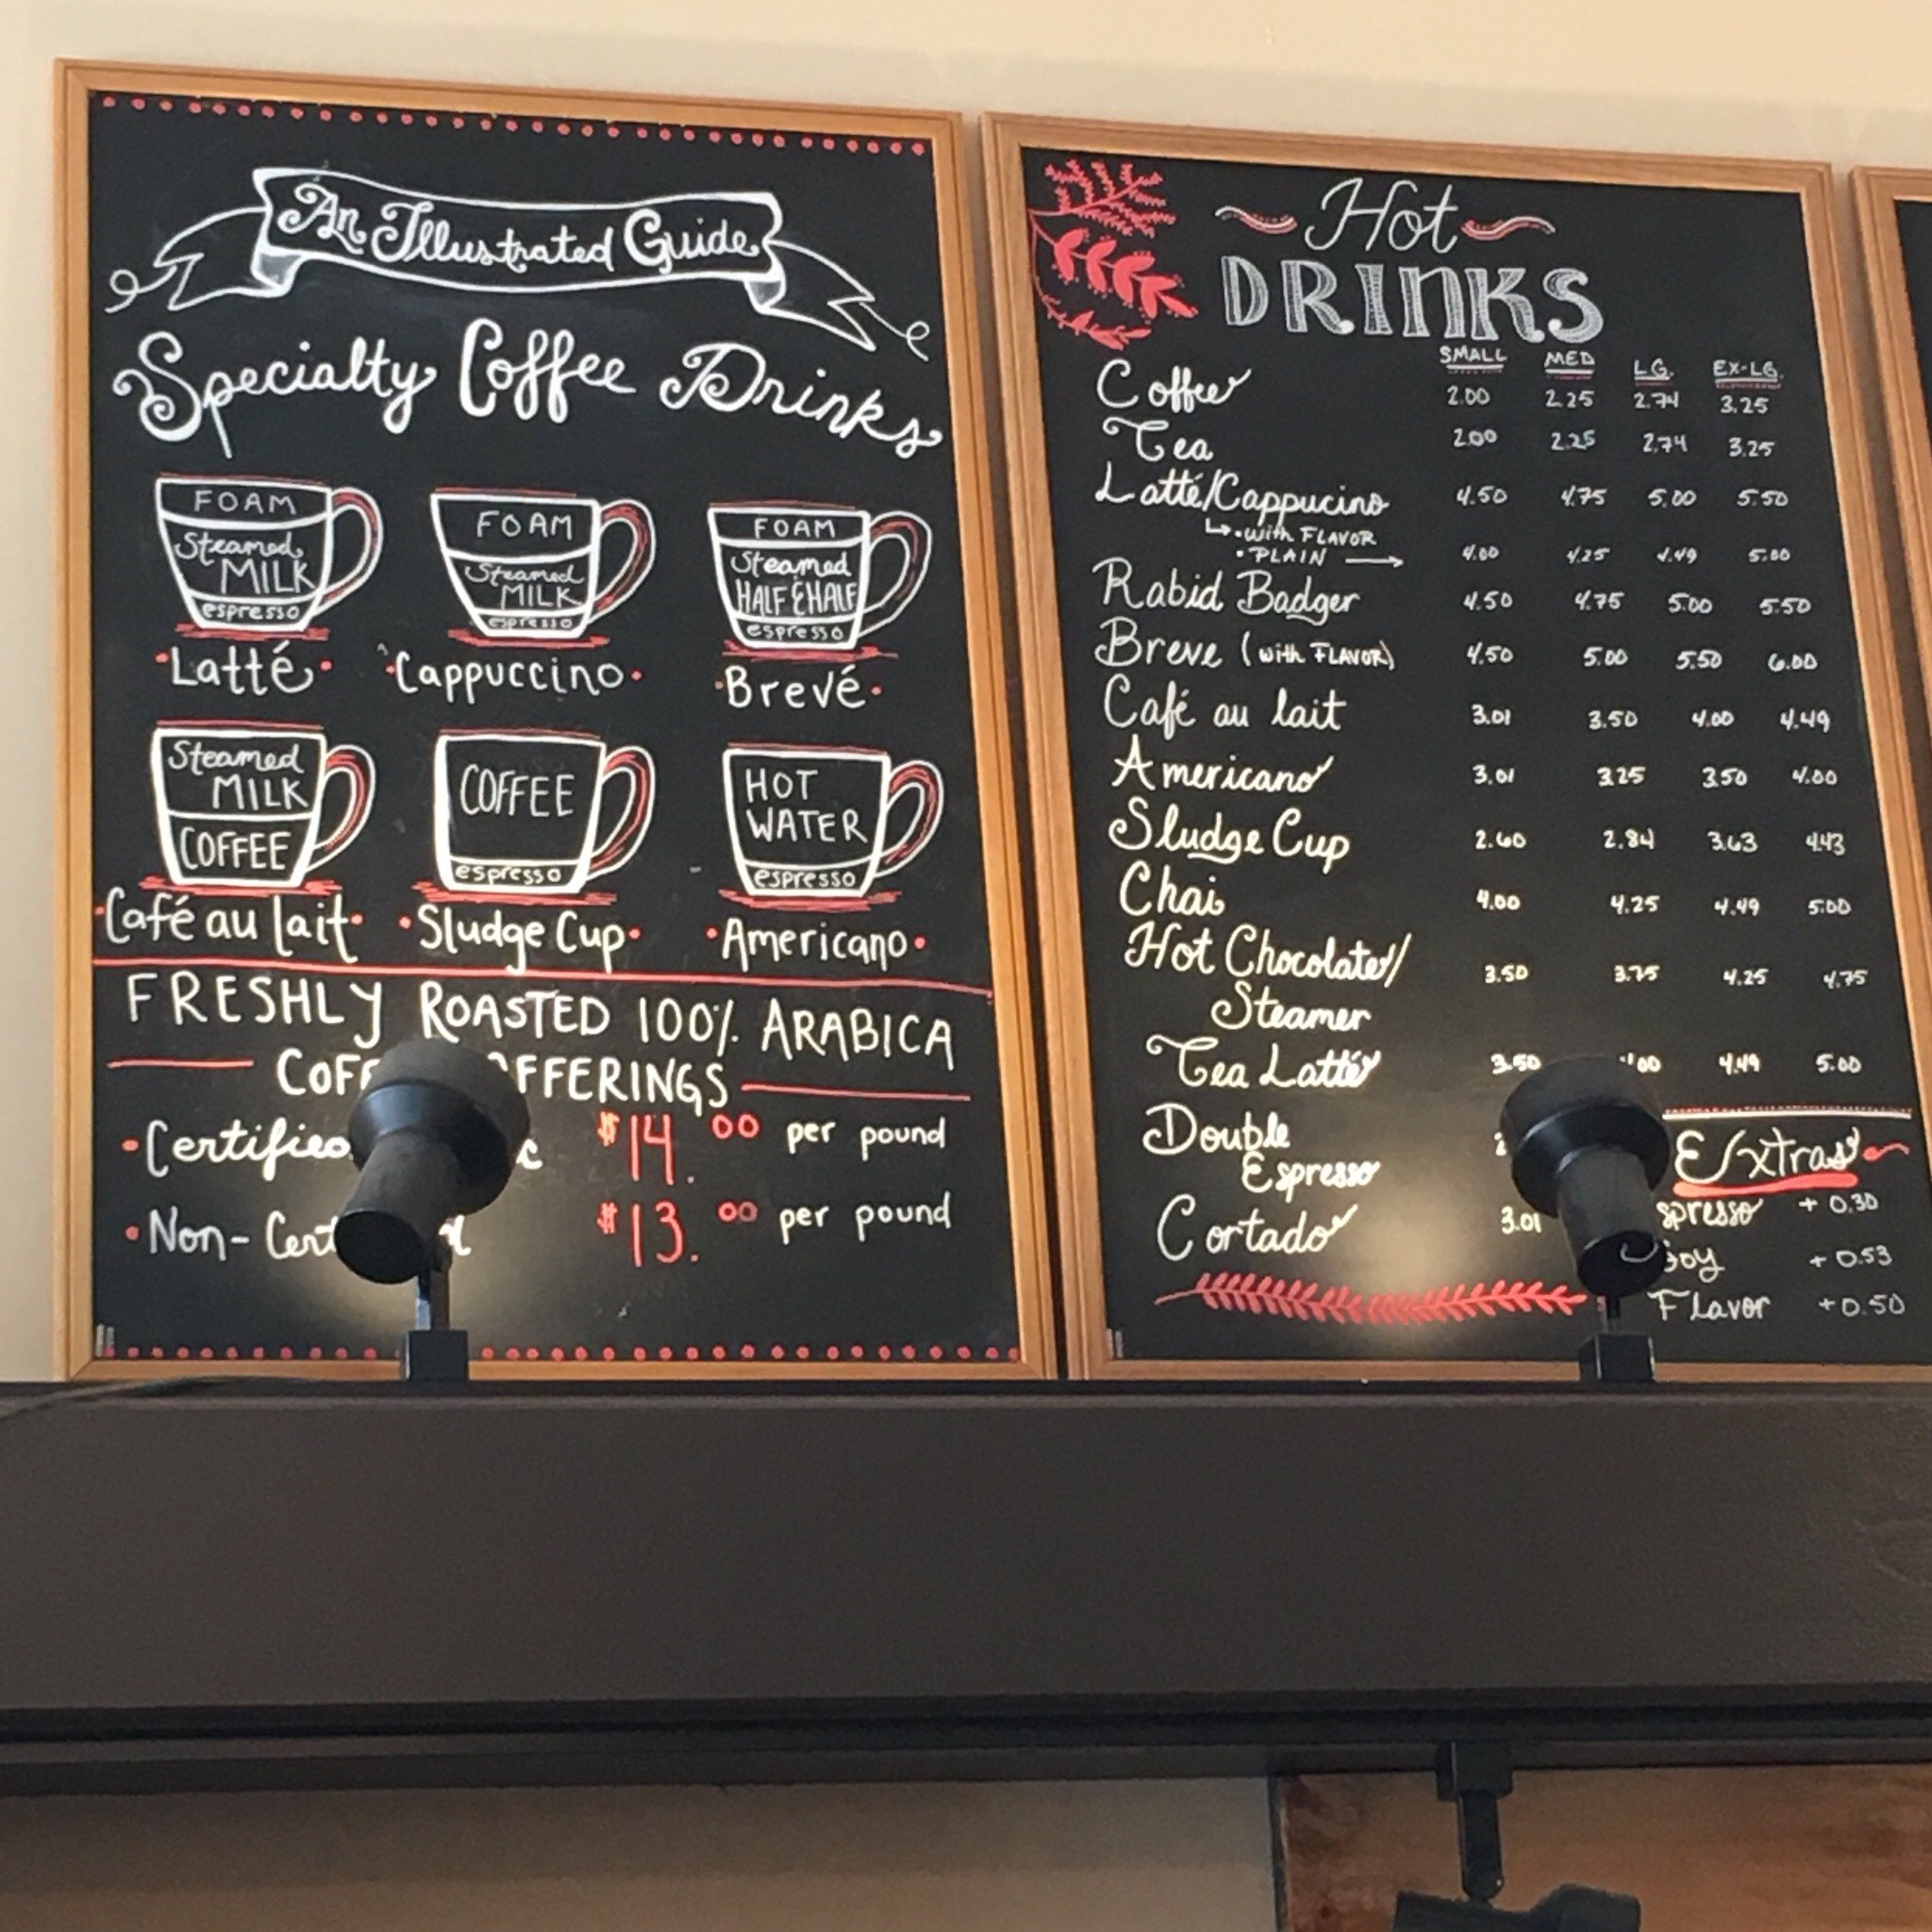 An Illustrated Guide
Specialty Coffee Drinks
FOAM
Steamed
MILK
espresso
Latté
FOAM
Steamed
MILK
espresso
Cappuccino
FOAM
Steamed
HALF & HALF
espresso
Brevé
Steamed
MILK
COFFEE
Café au lait
COFFEE
espresso
Sludge Cup
HOT
WATER
espresso
Americano
FRESHLY ROASTED 100% ARABICA
OFFERINGS
$14.00 per pound
Non- $13.00 per pound
Hot
DRINKS
SMALL MED LG. EX-LG.
Coffee 2.00 2.25 2.74 3.25
Tea 2.00 2.25 2.74 3.25
Latté/Cappucino 4.50 4.75 5.00 5.50
• with FLAVOR
• PLAIN → 4.00 4.25 4.49 5.00
Rabid Badger 4.50 4.75 5.00 5.50
Breve (with FLAVOR) 4.50 5.00 5.50 6.00
Café au lait 3.01 3.50 4.00 4.49
Americano 3.01 3.25 3.50 4.00
Sludge Cup 2.60 2.84 3.63 4.43
Chai 4.00 4.25 4.49 5.00
Hot Chocolate/ 3.50 3.75 4.25 4.75
Steamer
Tea Latté 3.50 4.49 5.00
Double
Espresso
Cortado 3.01
Extras
+ 0.30
Soy + 0.53
Flavor + 0.50